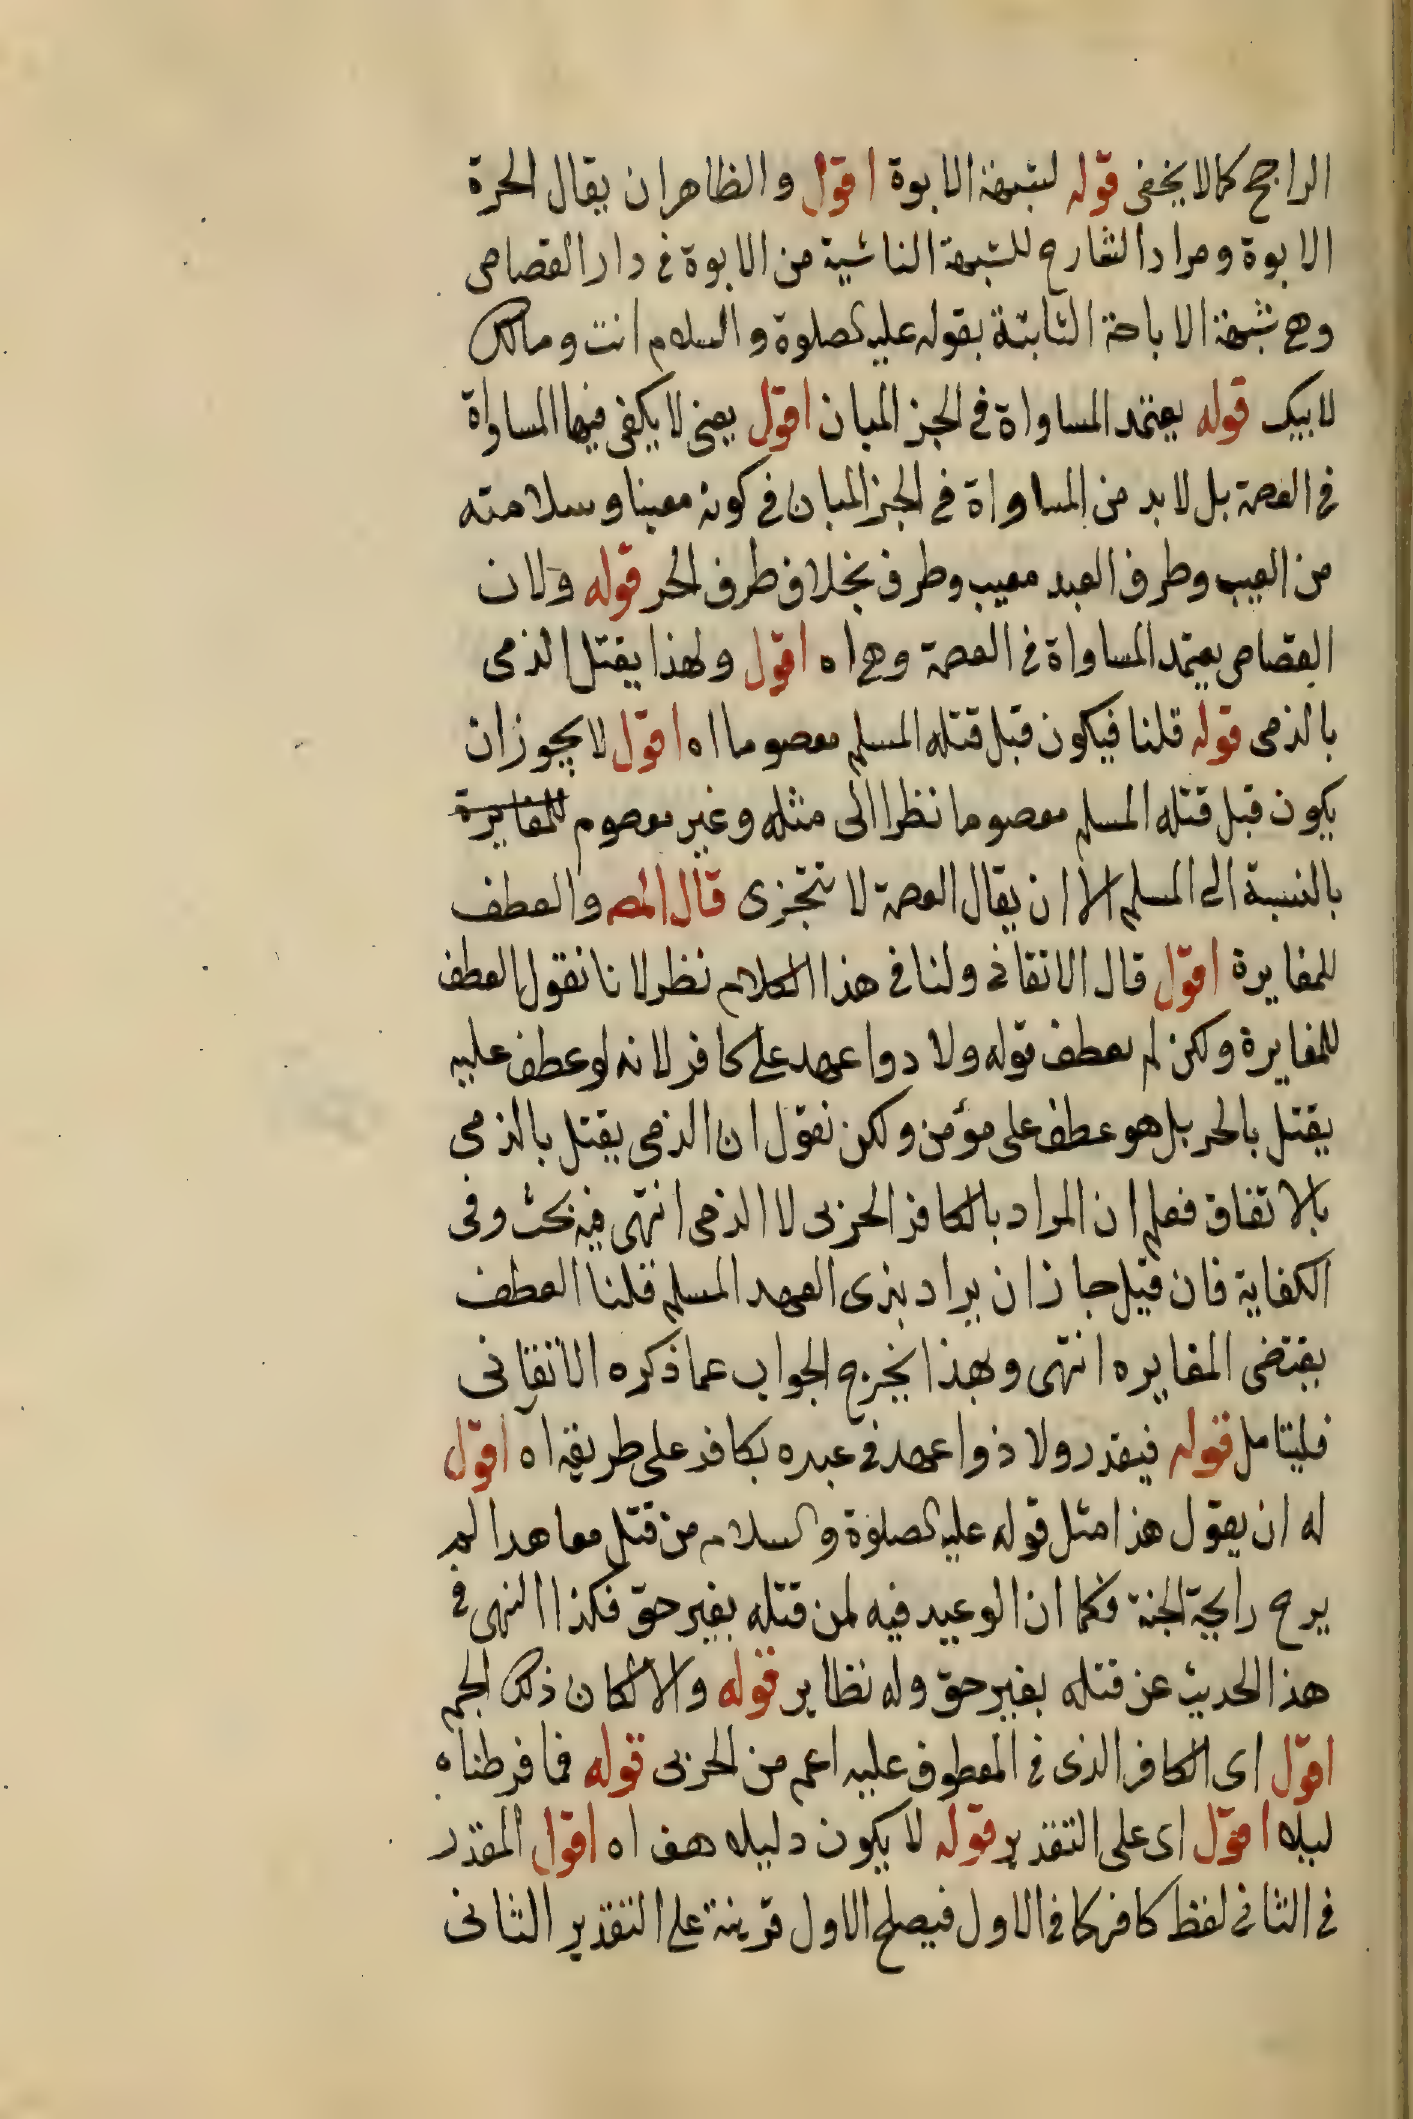 الراجح كما لا يخفى قوله لشبهة الابوة اقول والظاهر ان يقال الحرة
الابوة ومراد الشارح للشبهة الناشية من الابوة فى دار القصاص
وهى شبهة الاباحة الثابتة بقوله عليه الصلوة والسلام انت ومالك
لابيك قوله يعتمد المساواة فى الجزء المبان اقول يعنى لا يكفى فيها المساواة
فى العصمة بل لا بد من المساواة فى الجزء المبان فى كونه معيبا وسلامته
من العيب وطرف العبد معيب وطرف بخلاف طرف الحر قوله ولان
القصاص يعتمد المساواة فى العصمة وهى اه اقول ولهذا يقتل الذمى
بالذمى قوله قلنا فيكون قبل قتله المسلم معصوما اه اقول لا يجوز ان
يكون قبل قتله المسلم معصوما نظرا الى مثله وغير معصوم للمغايرة
بالنسبة الى المسلم الا ان يقال العصمة لا تتجزى قال المص والعطف
للمغايرة اقول قال الاتقانى ولنا فى هذا الكلام نظر لانا نقول العطف
للمغايرة ولكن لم يعطف قوله ولا ذوا عهد على كافر لانه لو عطف عليه
يقتل بالحر بل هو عطف على مؤمن ولكن نقول ان الذمى يقتل بالذمى
بالاتفاق فعلم ان المراد بالكافر الحربى لا الذمى انتهى فيه بحث وفى
الكفاية فان قيل جاز ان يراد بذى العهد المسلم قلنا العطف
يقتضى المغايره انتهى وبهذا يخرج الجواب عما ذكره الاتقانى
فليتامل قوله فيقدر ولا ذوا عهد فى عبده بكافر على طريقه اه اقول
له ان يقول هذا مثل قوله عليه الصلوة والسلام من قتل معاهدا لم
يرح رايحة الجنة فكما ان الوعيد فيه لمن قتله بغير حق فكذا النهى فى
هذا الحديث عن قتله بغير حق وله نظاير قوله والا لكان ذلك الجم
اقول اى الكافر الذى فى المعطوف عليه اعم من الحربى قوله فما فرطناه
ليله اقول اى على التقدير قوله لا يكون دليله هف اه اقول المقدر
فى الثانى لفظ كافر كما فى الاول فيصلح الاول قرينة على التقدير الثانى